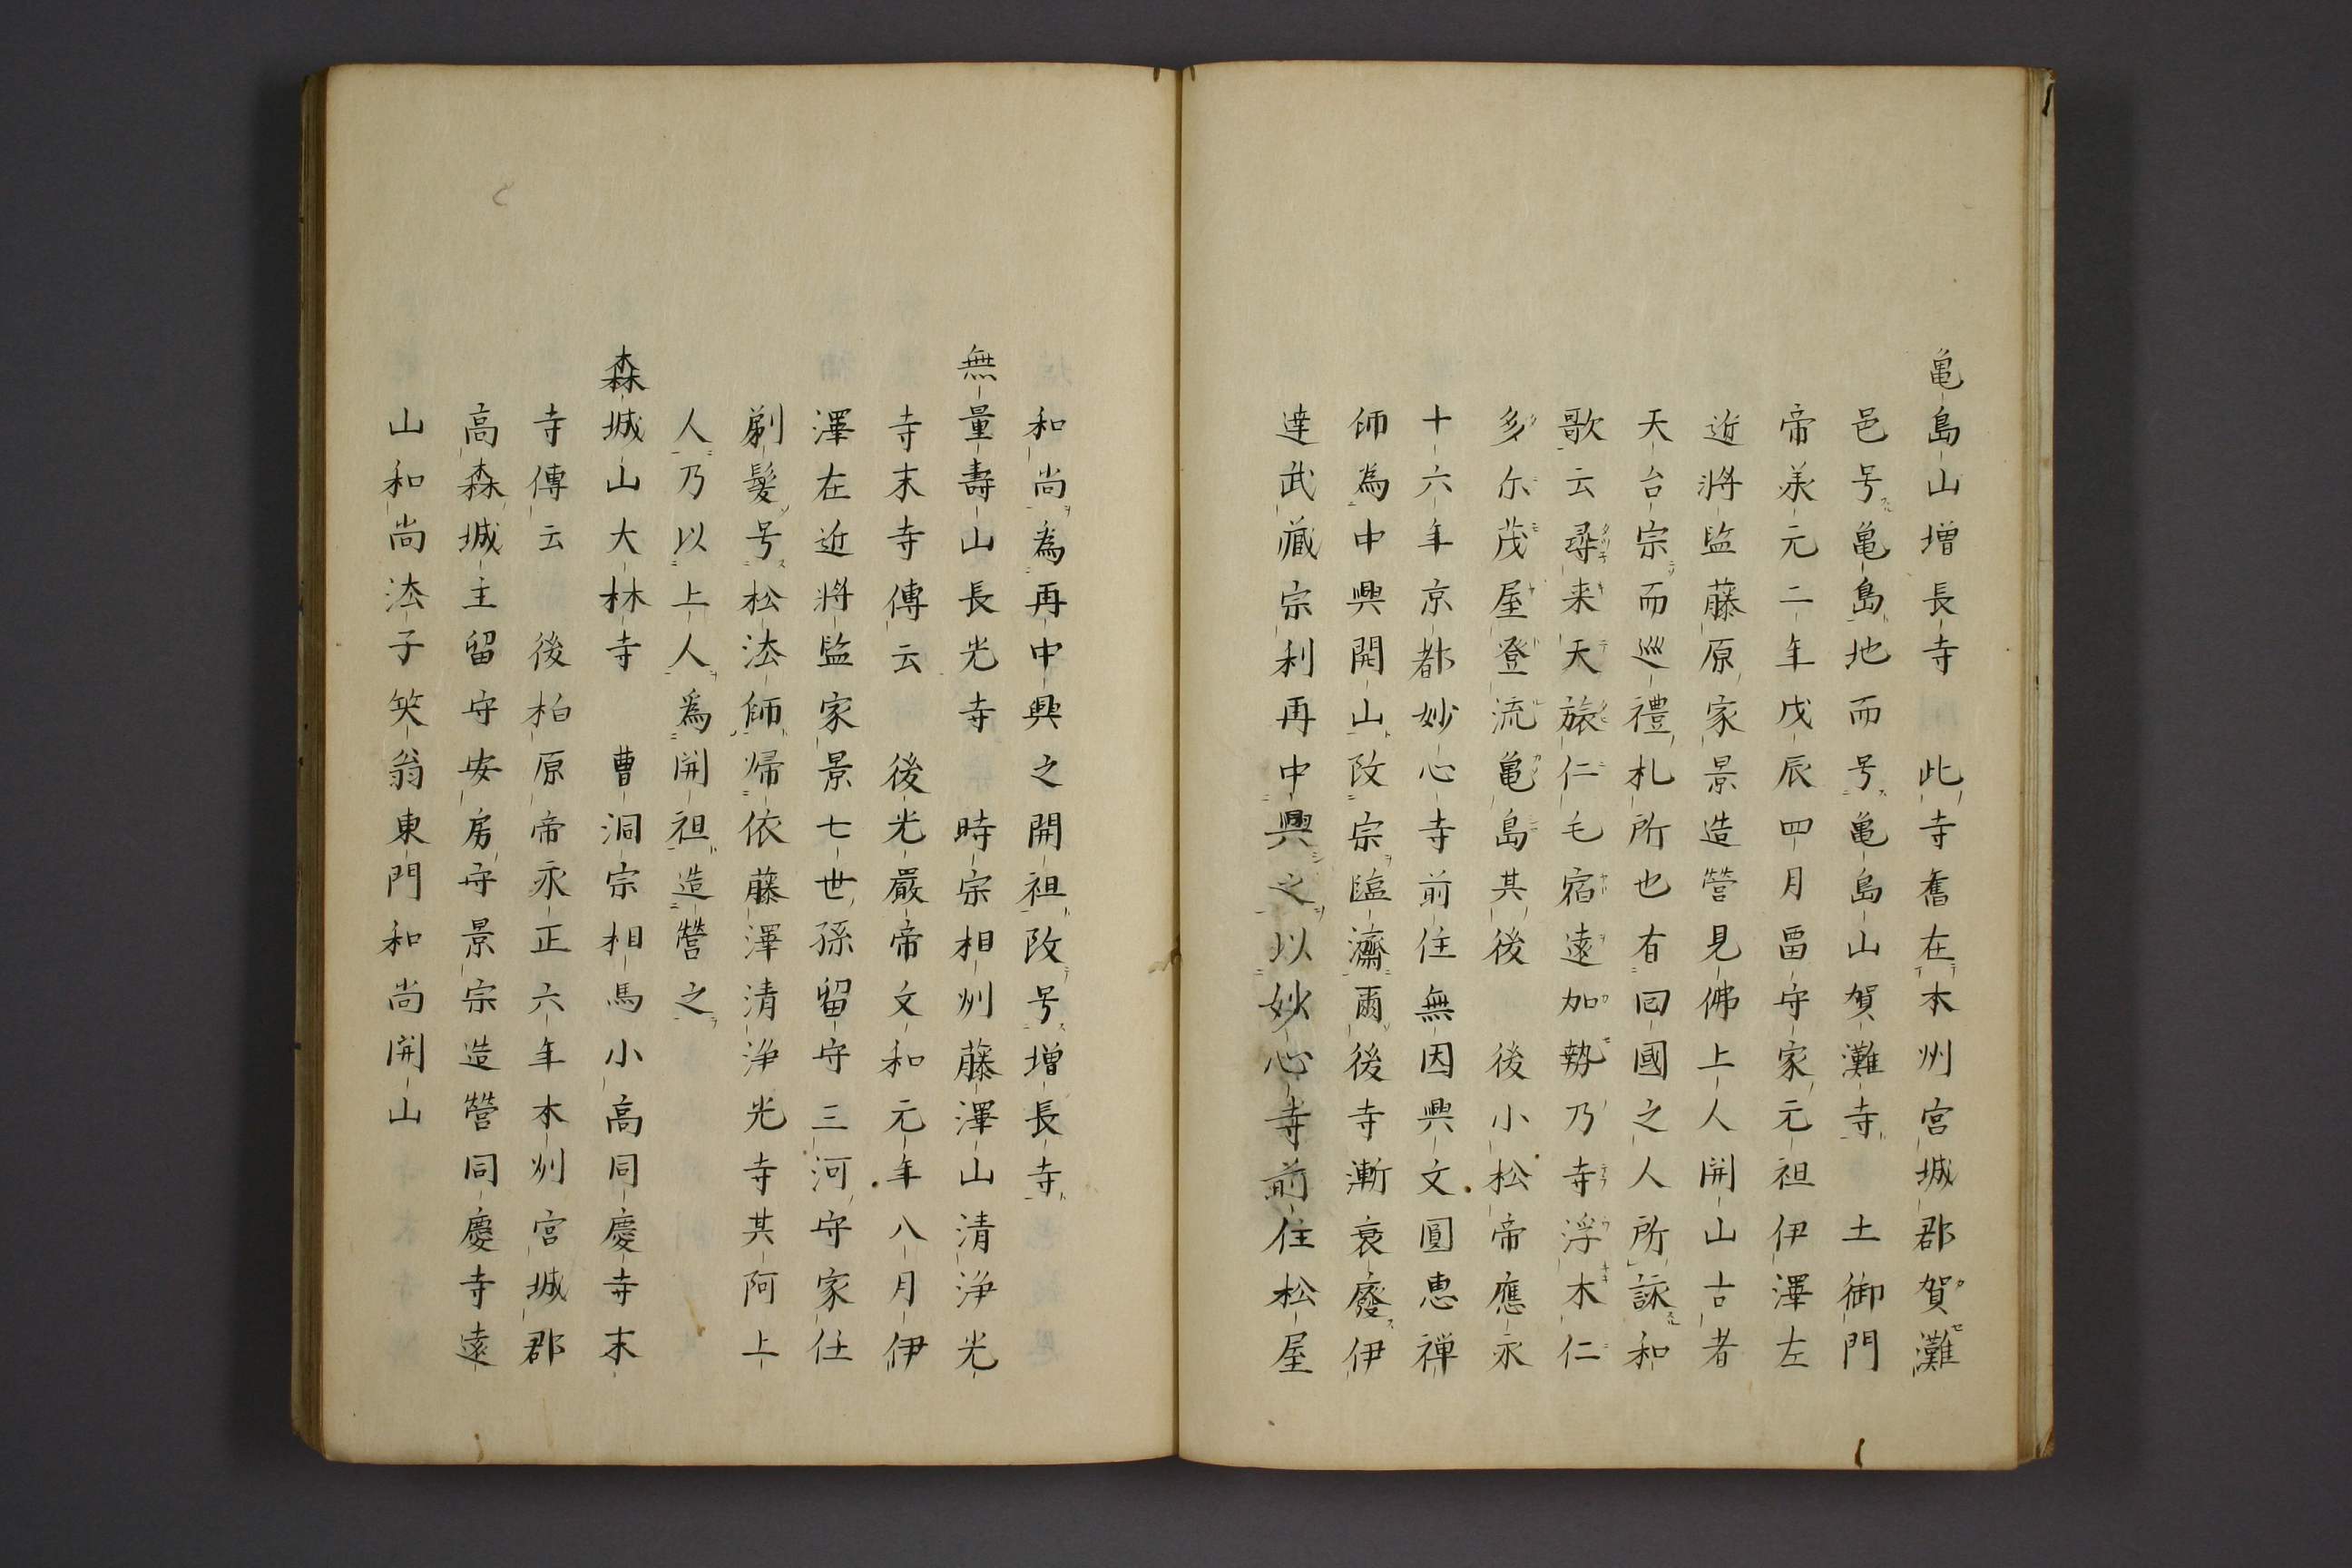 亀島山増長寺　此寺奮在本州宮城郡賀灘
邑号亀島地而号亀島山賀灘寺　土御門
帝羕元二年戊辰四月畱守家元祖伊澤左
近將監藤原家景造營見佛上人開山古者
天台宗而巡禮札所也有回國之人所詠和
歌云尋来天旅仁毛宿遠加勢乃寺浮木仁
多尓茂屋登流亀島其後　後小松帝應永
十六年京都妙心寺前住無因興文圓恵禅
師為中興開山改宗臨濟爾後寺漸衰廢伊
達武藏宗利再中興之以妙心寺前住松屋
和尚為再中興之開祖改号増長寺
無量壽山長光寺　時宗相州藤澤山清浄光
寺末寺傳云　後光嚴帝文和元年八月伊
澤左近將監家景七世孫留守三河守家任
剃髪号松法師帰依藤澤清浄光寺其阿上
人乃以上人爲開祖造營之
森城山大林寺　曹洞宗相馬小高同慶寺末
寺傳云　後柏原帝永正六年本州宮城郡
高森城主留守安房守景宗造營同慶寺遠
山和尚法子笑翁東門和尚開山